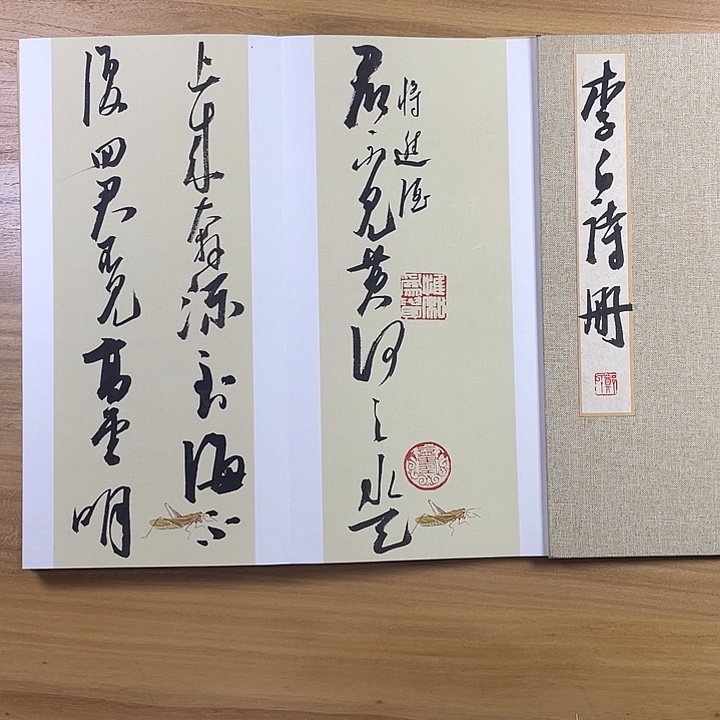 李白诗册
将進酒
君不见黄河之水天
上来奔流到海不
復回君不见高堂明